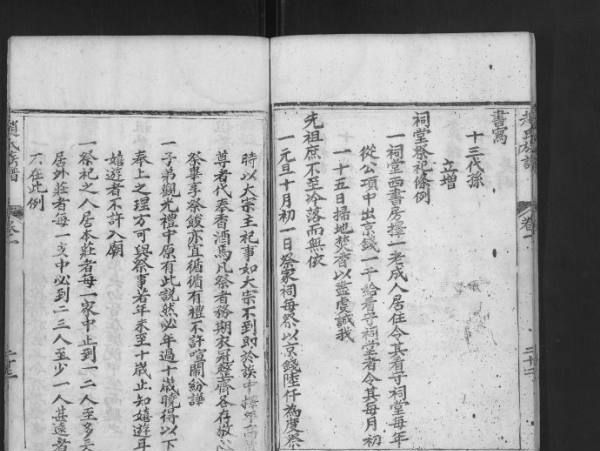 書寫
十三代孫
立增
祠堂祭祀條例
一祠堂西書房擇一老成人居住令其看守祠堂每年
從公項中出京錢一千給看守祠堂者令其每月初
一十五日掃地焚香以盡虔誠我
先祖庶不至冷落而無依
一元旦十月初一日祭家祠每祭以京錢陸仟為度祭
時以大宗主祀事如大宗不到即於族中擇
尊者代奉香酒焉凡祭者務期衣冠整齊各存敬心
祭畢享祭餕亦宜循循有禮不許喧鬧紛譁
一子弟觀光禮中原有此說然必年過十歲曉得以下
奉上之理方可與祭事若年未至十歲止知嬉遊耳
嬉遊者不許入廟
一祭祀之人居本莊者每一家中止到一二人至多三
居外莊者每一支中必到二三人至少一人甚遠者
不在此例
趙氏族譜
卷一